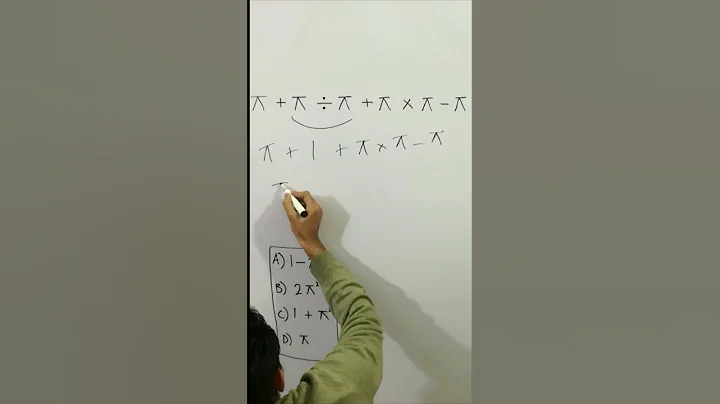 π + π ÷ π + π × π − π
π + 1 + π × π − π
π
A) 1 −
B) 2π²
C) 1 + π²
D) π